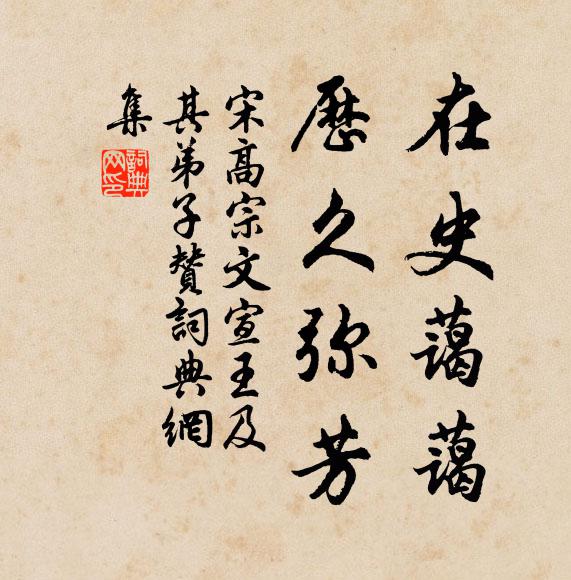 在史藹藹
歷久弥芳
宋高宗文宣王及
其弟子贊詞典網
集
詞典网印